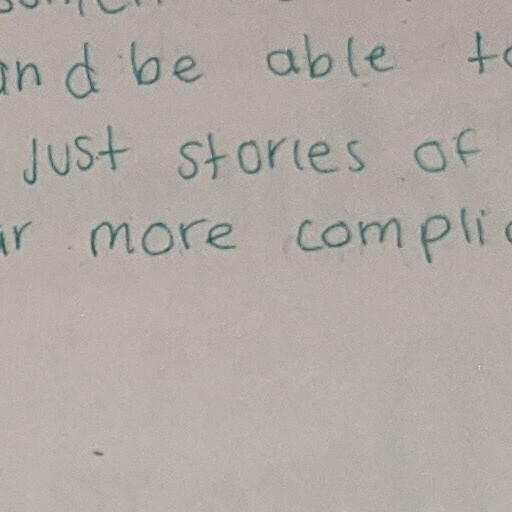 and be able to
just stories of
more compli